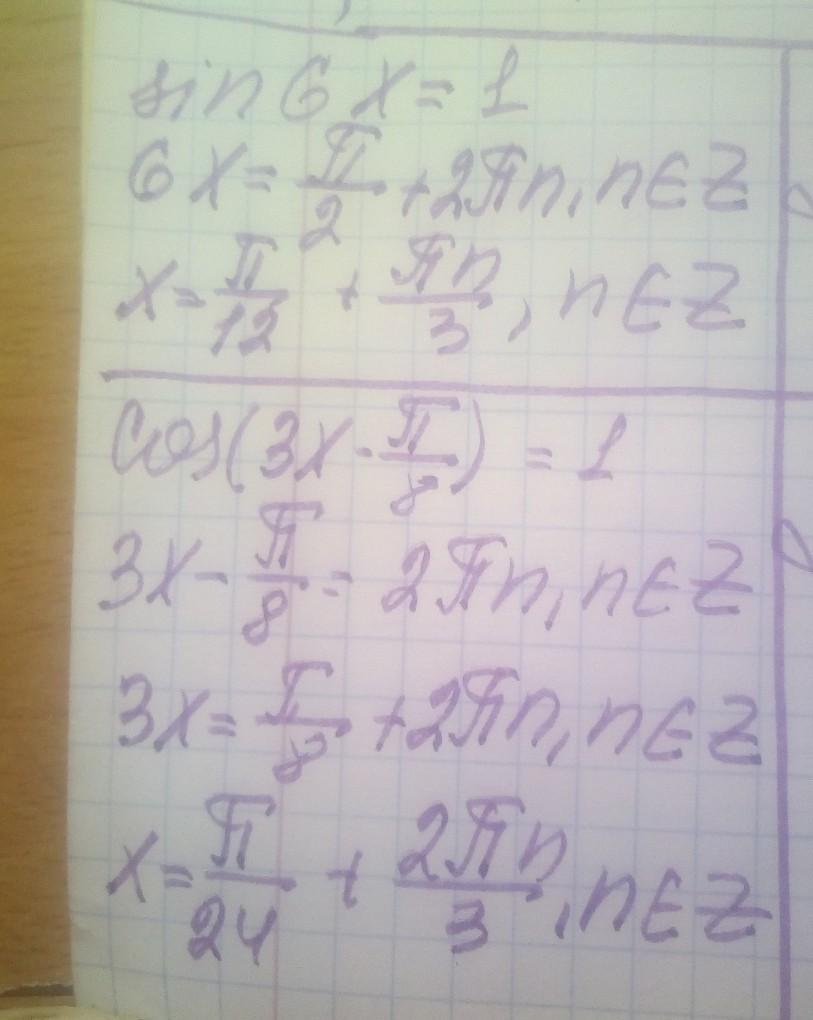 sin 6x = 1
6x = π/2 + 2πn, n ∈ Z
x = π/12 + πn/3, n ∈ Z
cos(3x - π/8) = 1
3x - π/8 = 2πn, n ∈ Z
3x = π/8 + 2πn, n ∈ Z
x = π/24 + 2πn/3, n ∈ Z